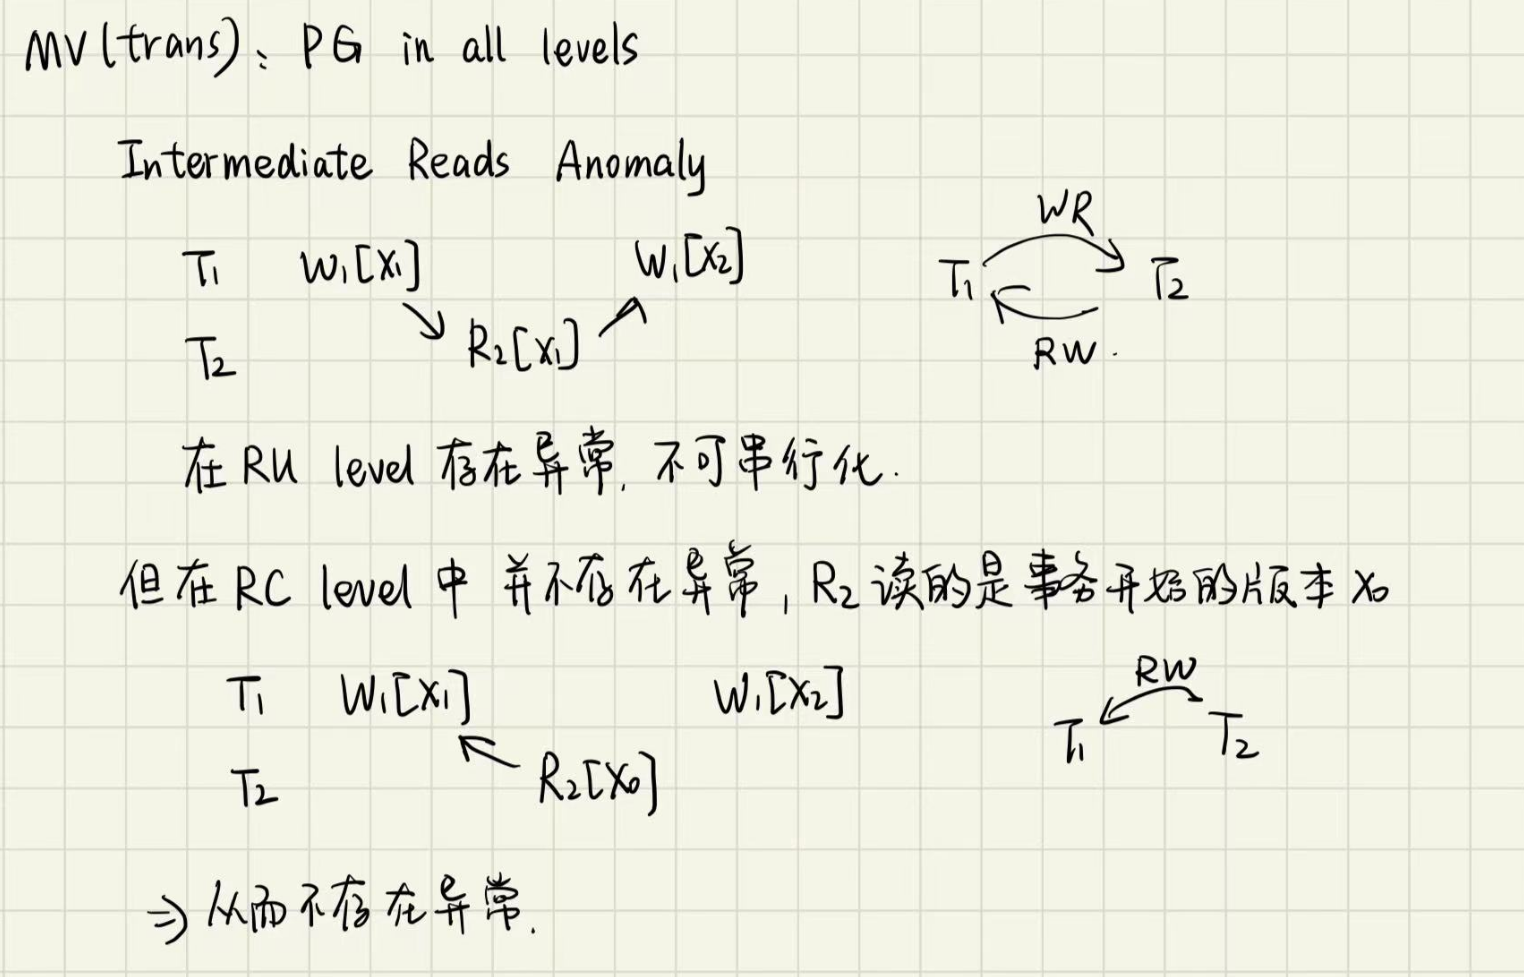 MV(trans): PG in all levels
Intermediate Reads Anomaly
WR
T₁ W₁[X₁] W₁[X₂] T₁ T₂
T₂ R₂[X₁] RW.
在 RU level 存在异常, 不可串行化.
但在 RC level 中 并不存在异常, R₂ 读的是事务开始的版本 X₀
RW
T₁ W₁[X₁] W₁[X₂] T₁ T₂
T₂ R₂[X₀]
⇒ 从而不存在异常.